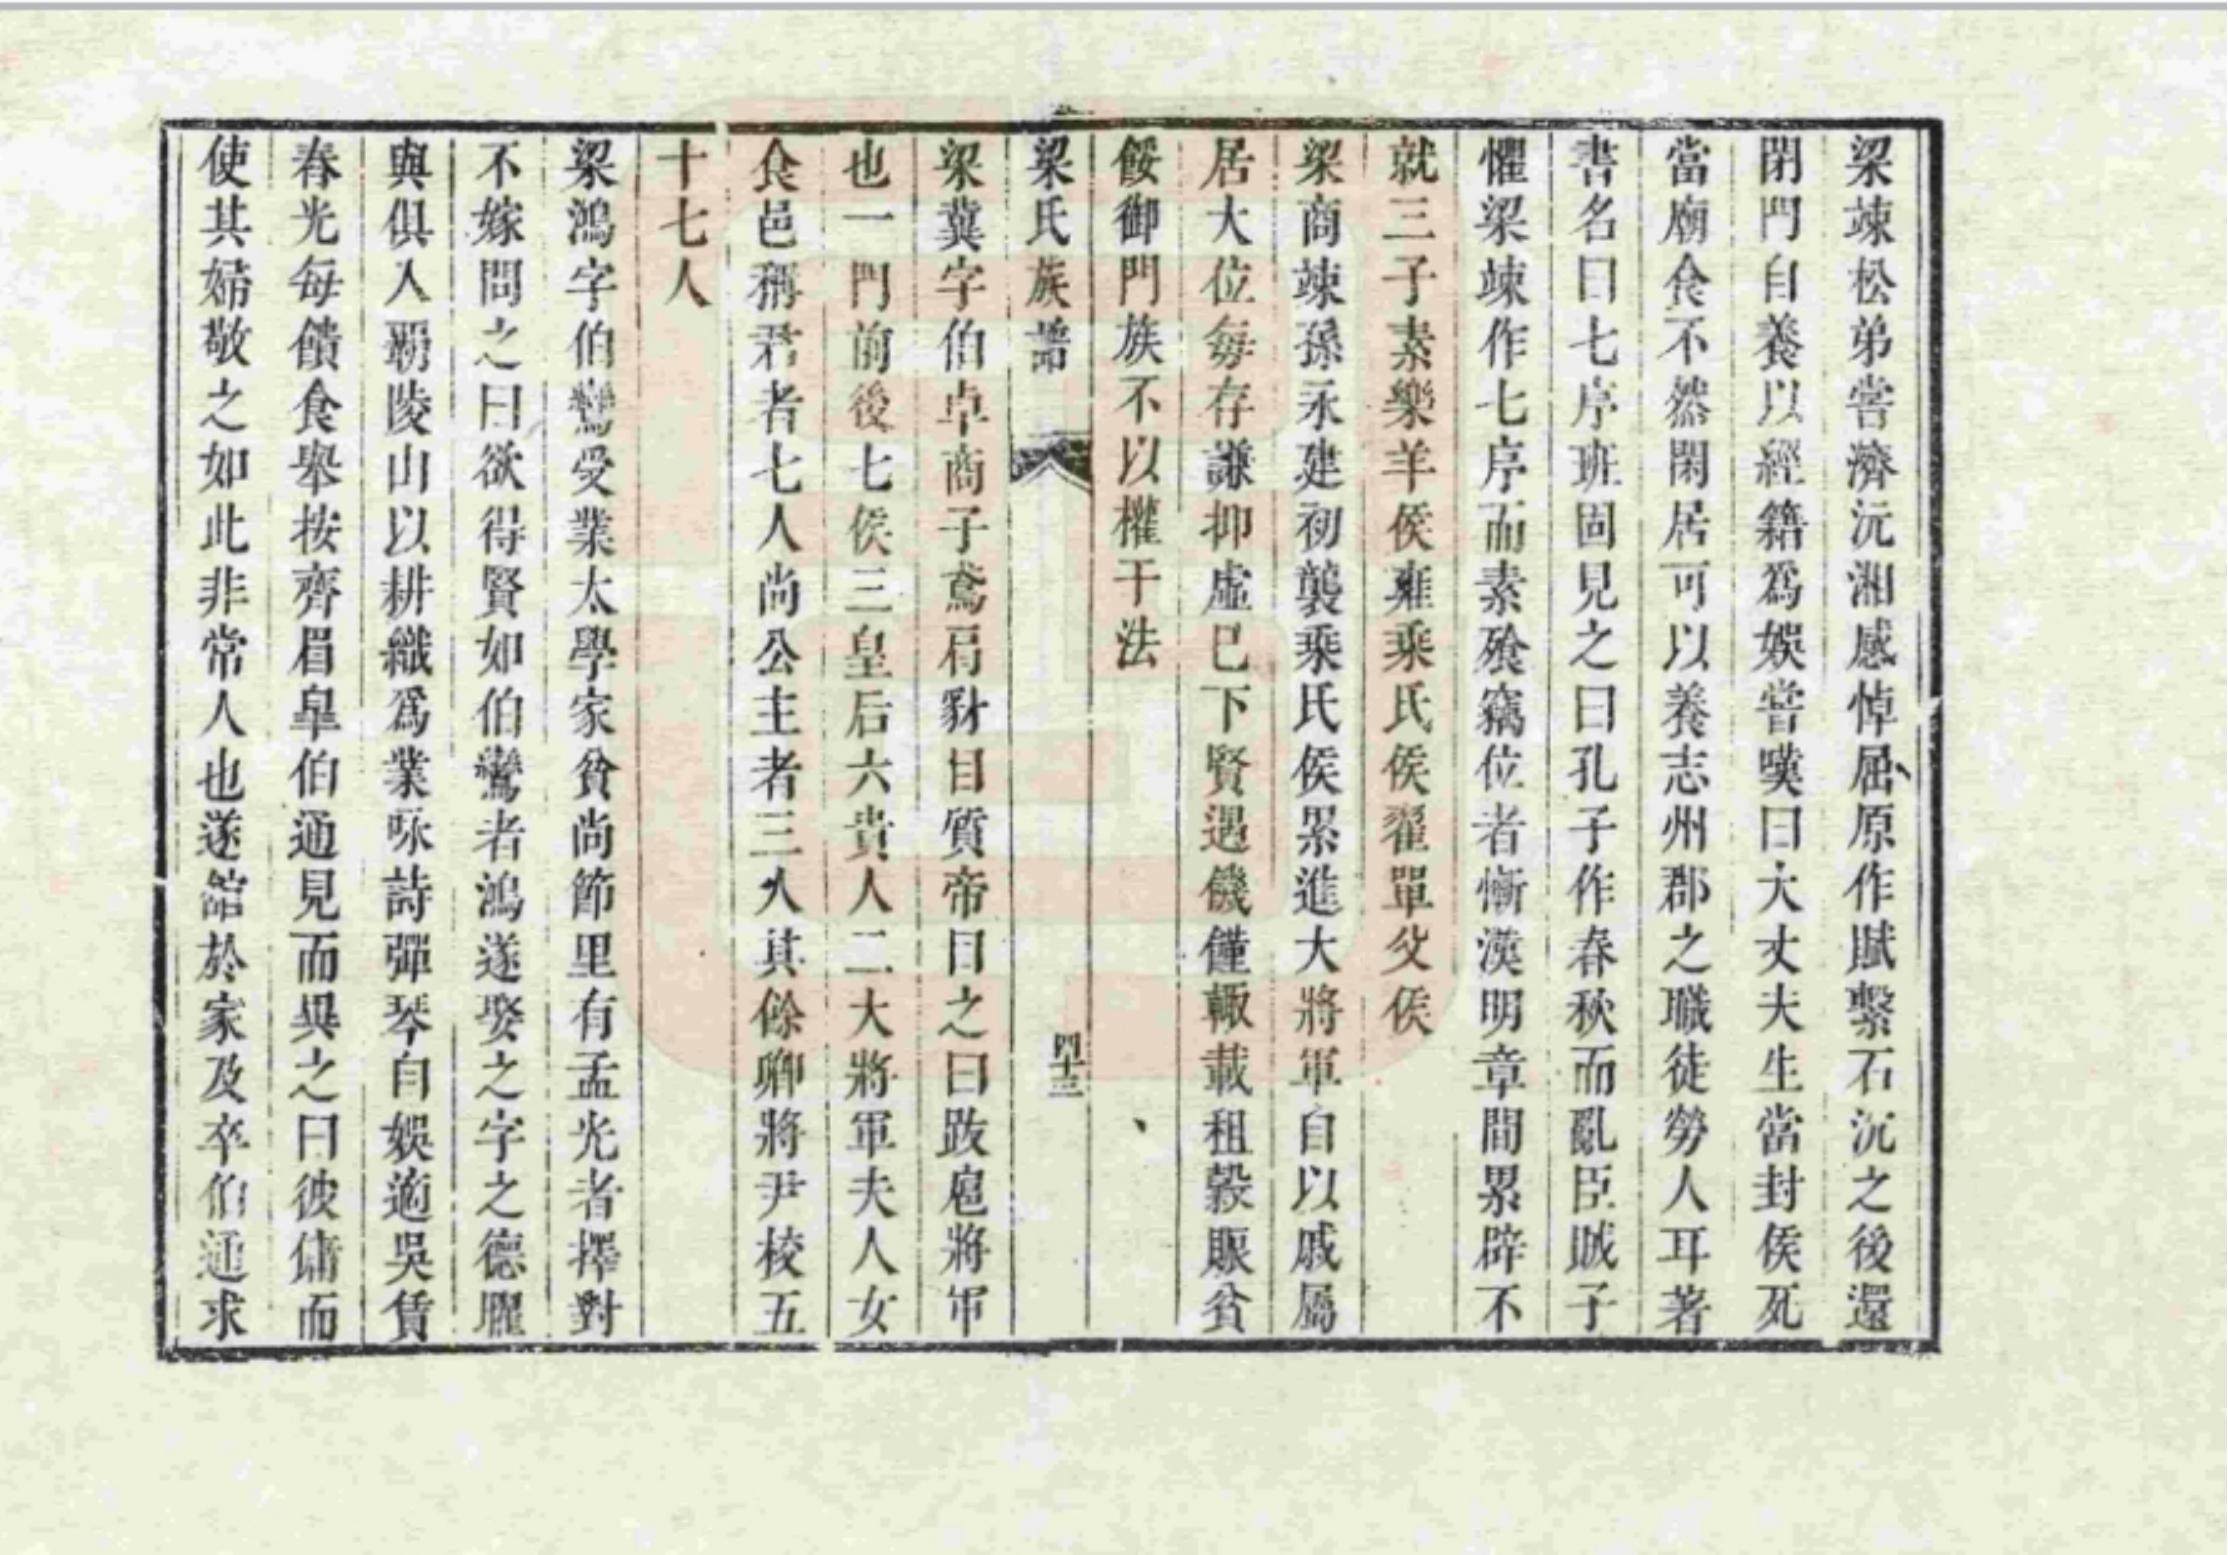 梁竦松弟嘗濟沅湘感悼屈原作賦繫石沉之後還
閉門自養以經籍爲娛嘗嘆曰大丈夫生當封侯死
當廟食不然閑居可以養志州郡之職徒勞人耳著
書名曰七序班固見之曰孔子作春秋而亂臣賊子
懼梁竦作七序而素飱竊位者慚漢明章間累辟不
就三子素樂羊侯雍乘氏侯翟單父侯
梁商竦孫永建初襲乘氏侯累進大將軍自以戚屬
居大位每存謙抑虛已下賢遇饑饉輙載租穀賑貧
餒御門族不以權干法
梁氏族譜
四十三
梁冀字伯卓商子鳶肩豺目質帝目之曰跋扈將軍
也一門前後七侯三皇后六貴人二大將軍夫人女
食邑稱君者七人尚公主者三人其餘卿將尹校五
十七人
梁鴻字伯鸞受業太學家貧尚節里有孟光者擇對
不嫁問之曰欲得賢如伯鸞者鴻遂娶之字之德耀
與俱入覇陵山以耕織爲業咏詩彈琴自娛適吳賃
春光每饋食舉按齊眉皐伯通見而異之曰彼傭而
使其婦敬之如此非常人也遂舘於家及卒伯通求